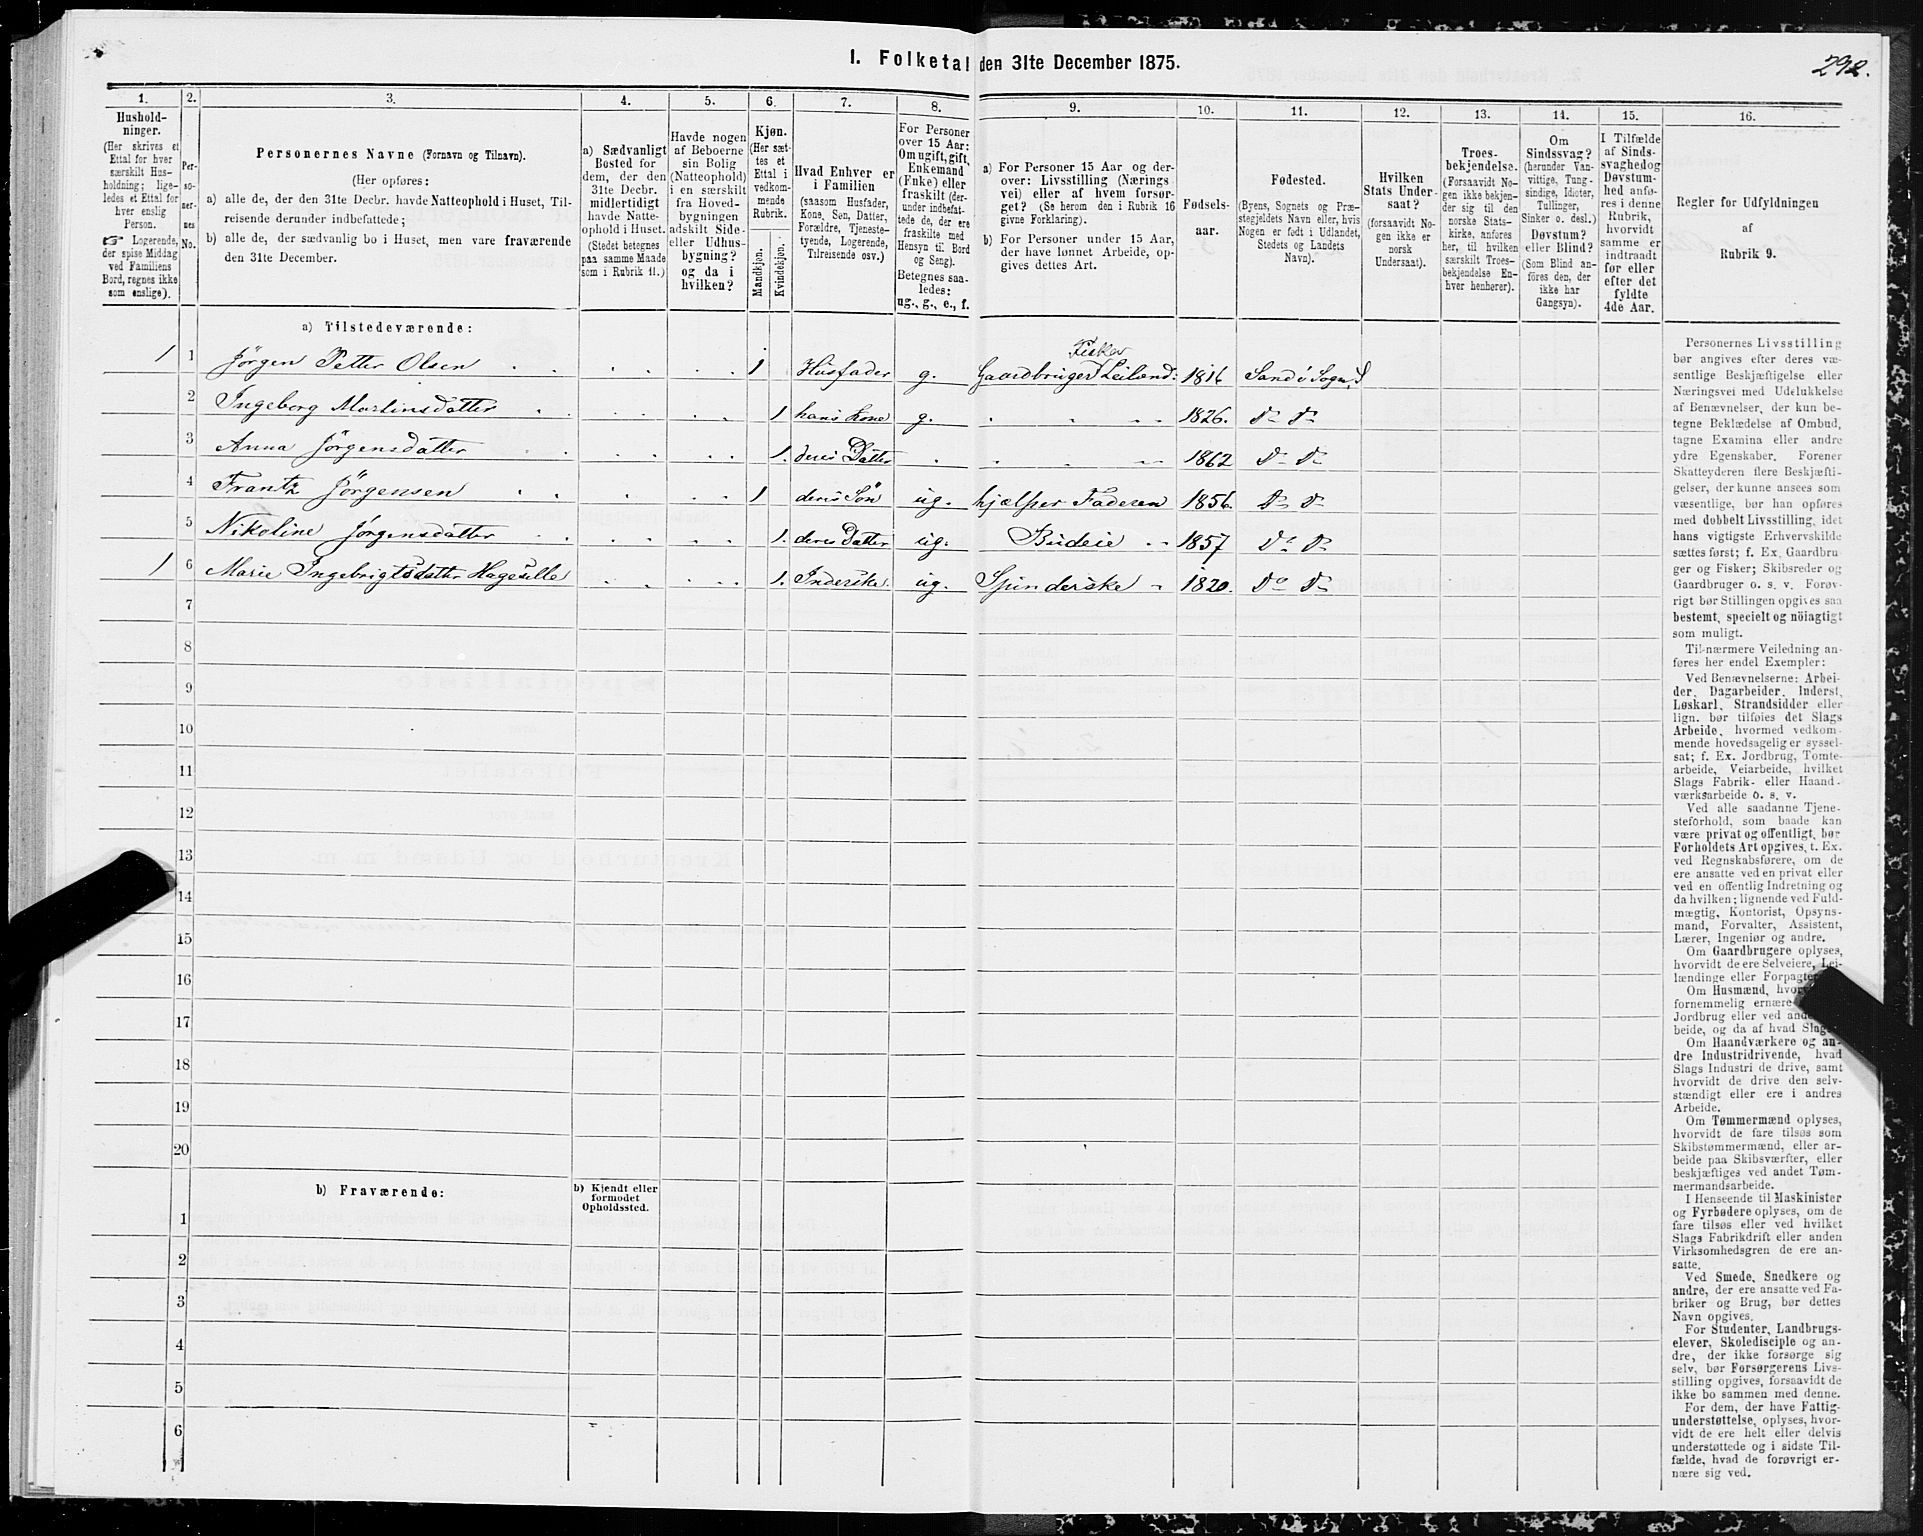 I. Folketal den 31te December 1875.
292.
1.
2.
3.
4.
5.
6.
7.
8.
9.
10.
11.
12.
13.
14.
15.
16.
Hushold-
ninger.
(Her skrives et
Ettal for hver
særskilt Hus-
holdning; lige-
ledes et Ettal for
hver enslig
Person.
☞ Logerende,
der spise Middag
ved Familiens
Bord, regnes ikke
som enslige).
Per-
so-
ner-
nes
No.
Personernes Navne (Fornavn og Tilnavn).
(Her opføres:
a) alle de, der den 31te Decbr. havde Natteophold i Huset, Til-
reisende derunder indbefattede;
b) alle de, der sædvanlig bo i Huset, men vare fraværende
den 31te December.
a) Sædvanligt
Bosted for
dem, der den
31te Decbr.
midlertidigt
havde Natte-
ophold i Huset.
(Stedet betegnes
paa samme Maade
som i Rubrik 11.)
Havde nogen
af Beboerne
sin Bolig
(Natteophold)
i en særskilt
fra Hoved-
bygningen
adskilt Side-
eller Udhus-
bygning?
og da i
hvilken?
Kjøn.
(Her sæt-
tes et
Ettal i
vedkom-
mende
Rubrik.
Mandkjøn.
Kvindekjøn.
Hvad Enhver er
i Familien
(saasom Husfader,
Kone, Søn, Datter,
Forældre, Tjeneste-
tyende, Logerende,
Tilreisende osv.)
For Personer
over 15 Aar:
Om ugift, gift,
Enkemand
(Enke) eller
fraskilt (der-
under indbefat-
tede de, der ere
fraskilte med
Hensyn til Bord
og Seng).
Betegnes saa-
ledes:
ug., g., e., f.
a) For Personer 15 Aar og der-
over: Livsstilling (Nærings-
vei) eller af hvem forsør-
get? (Se herom den i Rubrik 16
givne Forklaring).
b) For Personer under 15 Aar,
der have lønnet Arbeide, op-
gives dettes Art.
Fødsels-
aar.
Fødested.
(Byens, Sognets og Præ-
stegjeldets Navn eller, hvis
Nogen er født i Udlandet,
Stedets og Landets
Navn).
Hvilken
Stats Under-
saat?
(forsaavidt No-
gen ikke er
norsk
Undersaat).
Troes-
bekjendelse.
(Forsaavidt No-
gen ikke bekjen-
der sig til den
norske Stats-
kirke, anføres
her, til hvilken
særskilt Troes-
bekjendelse En-
hver henhører).
Om
Sindssvag?
(herunder Van-
vittige, Tung-
sindige, Idioter,
Tullinger,
Sinker o. desl.)
Døvstum?
eller Blind?
(Som Blind an-
føres den, der
ikke har
Gangsyn).
I Tilfælde
af Sinds-
svaghed og
Døvstum-
hed anfø-
res i denne
Rubrik,
hvorvidt
samme er
indtraadt
før eller
efter det
fyldte
4de Aar.
Regler for Udfyldningen
af
Rubrik 9.
a) Tilstedeværende:
1 1 Jörgen Petter Olsen 1 Husfader g. Gaardbruger Fisker Leilænd: 1816 Sand i Sogn
2 Ingeborg Martinsdatter 1 hans Kone g. 1826. Do Do
3 Anna Jörgensdatter 1. deres Datter 1862 Do Do
4 Frantz Jörgensen 1 deres Sön ug. hjælper Faderen 1856. Do Do
5 Nikoline Jörgensdatter 1. deres Datter ug. Budeie 1857 Do Do
1 6 Marie Ingebrigtsdatter 1. Inderske. ug. Spinderske 1820. Do Do
7
8
9
10
11
12
13
14
15
16
17
18
19
20
b) Fraværende:
b) Kjendt eller
formodet
Opholdssted.
1
2
3
4
5
6
Personernes Livsstilling
bør angives efter deres væ-
sentlige Beskjæftigelse eller
Næringsvei med Udelukkelse
af Benævnelser, der kun be-
tegne Beklædelse af Ombud,
tagne Examina eller andre
ydre Egenskaber. Forener
Skatteyderen flere Beskjæfti-
gelser, der kunne ansees som
væsentlige, bør han opføres
med dobbelt Livsstilling, idet
hans vigtigste Erhvervskilde
sættes først; f. Ex. Gaardbru-
ger og Fisker; Skibsreder og
Gaardbruger o. s. v. Forøv-
rigt bør Stillingen opgives saa
bestemt, specielt og nöiagtigt
som muligt.
Til nærmere Veiledning an-
føres her endel Exempler:
Ved Benævnelserne: Arbei-
der, Dagarbeider, Inderst,
Løskarl, Strandsidder eller
lign. bør tilføies det Slags
Arbeide, hvormed vedkom-
mende hovedsagelig er syssel-
sat; f. Ex. Jordbrug, Tomte-
arbeide, Veiarbeide, hvilket
Slags Fabrik- eller Haand-
værksarbeide o. s. v.
Ved alle saadanne Tjene-
steforhold, som baade kan
være privat og offentligt, bør
Forholdets Art opgives, t. Ex.
ved Regnskabsførere, om de
ere ansatte ved en privat eller
ved en offentlig Indretning og
da hvilken; lignende ved Fuld-
mægtig, Kontorist, Opsyns-
mand, Forvalter, Assistent,
Lærer, Ingeniør og andre.
Om Gaardbrugere oplyses,
hvorvidt de ere Selveiere, Lei-
lændinge eller
Om Husmænd,
fornemmelig ernære
Jordbrug eller ved
beide, og da af hvad
Om Haandværkere og an-
dre Industridrivende, hvad
Slags Industri de drive, samt
hvorvidt de drive den selv-
stændigt eller ere i andres
Arbeide.
Om Tømmermænd oplyses,
hvorvidt de fare tilsøs som
Skibstømmermænd, eller ar-
beide paa Skibsværfter, eller
beskjæftiges ved andet Tøm-
mermandsarbeide.
I Henseende til Maskinister
og Fyrbødere oplyses, om de
fare tilsøs eller ved hvilket
Slags Fabrikdrift eller anden
Virksomhedsgren de ere an-
satte.
Ved Smede, Snedkere og
andre, der ere ansatte ved Fa-
briker og Brug, bør dettes
Navn opgives.
For Studenter, Landbrugs-
elever, Skoledisciple og an-
dre, der ikke forsørge sig
selv, bør Forsørgerens Livs-
stilling opgives, forsaavidt de
ikke bo sammen med denne.
For dem, der have Fattig-
understøttelse, oplyses, hvor-
vidt de ere helt eller delvis
understøttede og i sidste Til-
fælde, hvad de forøvrigt er-
nære sig ved.